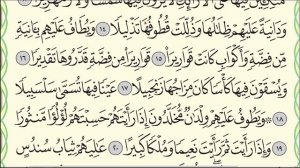 متكئين فيها على الأرائك لا يرون فيها شمسا ولا زمهريرا ١٣
ودانية عليهم ظلالها وذللت قطوفها تذليلا ١٤ ويطاف عليهم بـانية
من فضة وأكواب كانت قواريرا ١٥ قواريرا من فضة قدروها تقديرا ١٦
ويسقون فيها كأسا كان مزاجها زنجبيلا ١٧ عينا فيها تسمى سلسبيلا
١٨ ويطوف عليهم ولدان مخلدون إذا رأيتهم حسبتهم لؤلؤا منثورا
١٩ وإذا رأيت ثم رأيت نعيما وملكا كبيرا ٢٠ عليهم ثياب سندس